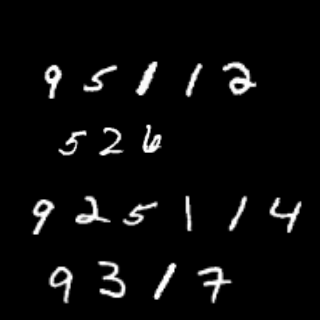 9 5 1 1 2
5 2 6
9 2 5 1 1 4
9 3 1 7